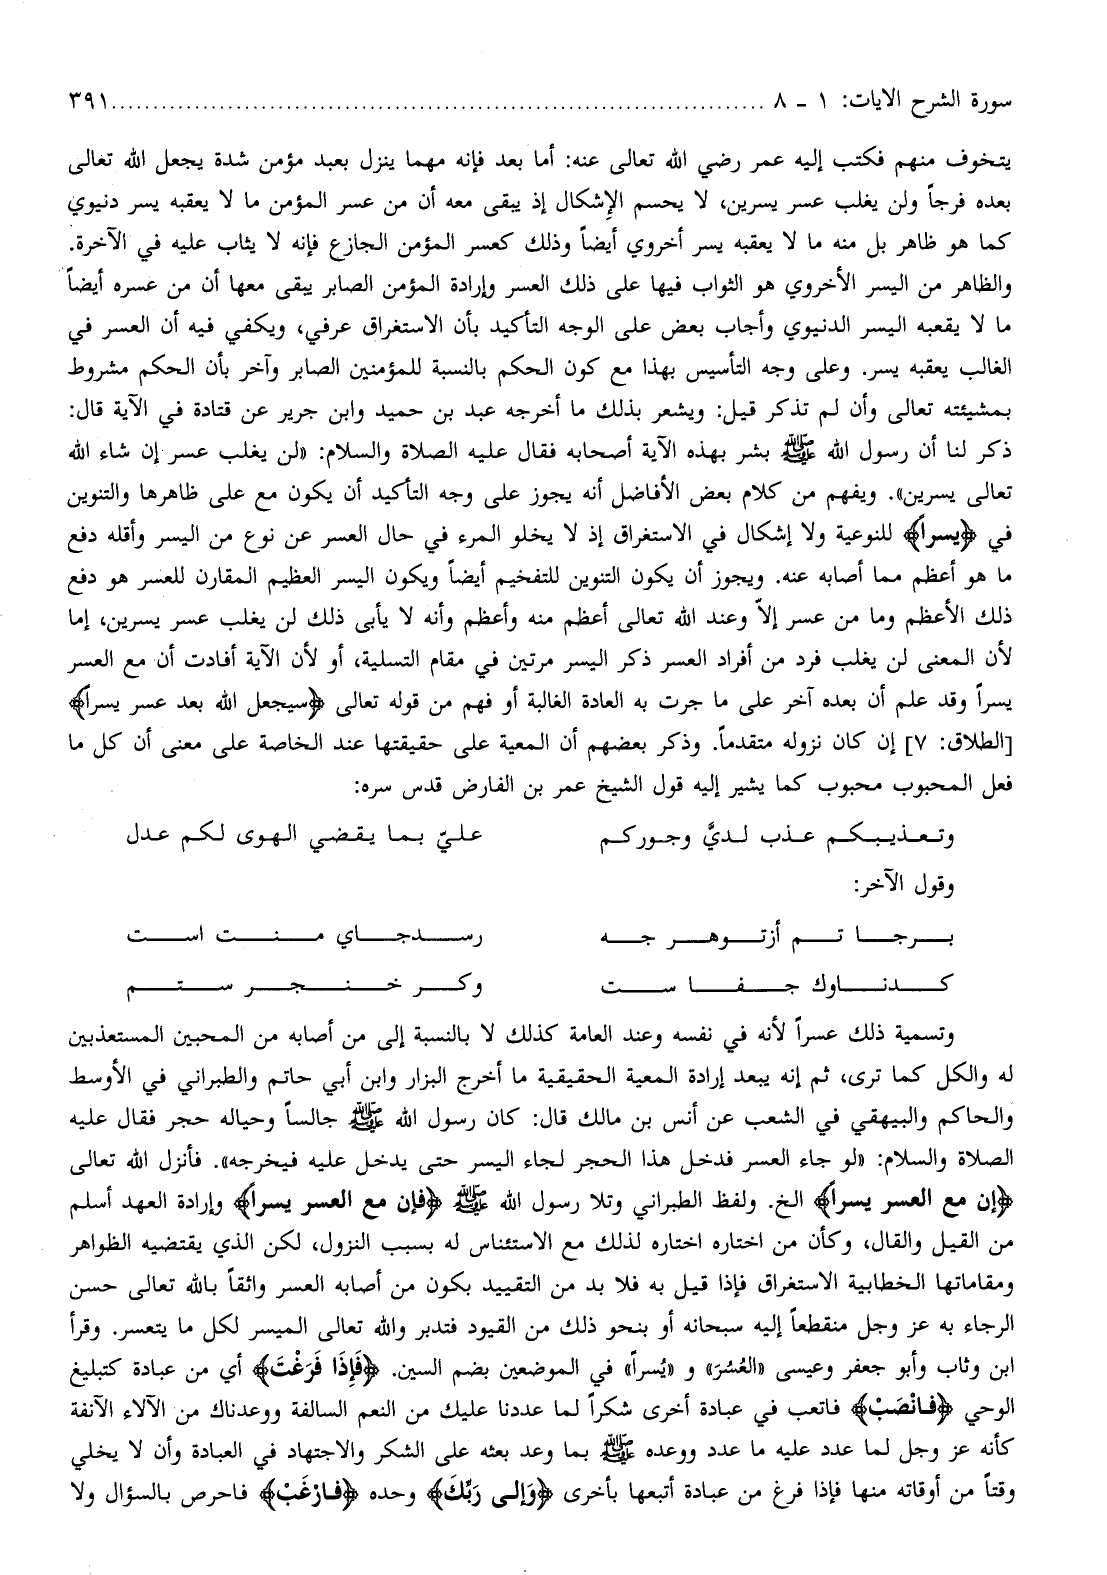 سورة الشرح الايات: ١ - ٨ ........................................................................... ٣٩١
يتخوف منهم فكتب إليه عمر رضي الله تعالى عنه: أما بعد فإنه مهما ينزل بعبد مؤمن شدة يجعل الله تعالى
بعده فرجاً ولن يغلب عسر يسرين، لا يحسم الإشكال إذ يبقى معه أن من عسر المؤمن ما لا يعقبه يسر دنيوي
كما هو ظاهر بل منه ما لا يعقبه يسر أخروي أيضاً وذلك كعسر المؤمن الجازع فإنه لا يثاب عليه في الآخرة.
والظاهر من اليسر الأخروي هو الثواب فيها على ذلك العسر وإرادة المؤمن الصابر يبقى معها أن من عسره أيضاً
ما لا يقعبه اليسر الدنيوي وأجاب بعض على الوجه التأكيد بأن الاستغراق عرفي، ويكفي فيه أن العسر في
الغالب يعقبه يسر. وعلى وجه التأسيس بهذا مع كون الحكم بالنسبة للمؤمنين الصابر وآخر بأن الحكم مشروط
بمشيئته تعالى وأن لم تذكر قيل: ويشعر بذلك ما أخرجه عبد بن حميد وابن جرير عن قتادة في الآية قال:
ذكر لنا أن رسول الله ﷺ بشر بهذه الآية أصحابه فقال عليه الصلاة والسلام: «لن يغلب عسر إن شاء الله
تعالى يسرين». ويفهم من كلام بعض الأفاضل أنه يجوز على وجه التأكيد أن يكون مع على ظاهرها والتنوين
في ﴿يسراً﴾ للنوعية ولا إشكال في الاستغراق إذ لا يخلو المرء في حال العسر عن نوع من اليسر وأقله دفع
ما هو أعظم مما أصابه عنه. ويجوز أن يكون التنوين للتفخيم أيضاً ويكون اليسر العظيم المقارن للعسر هو دفع
ذلك الأعظم وما من عسر إلاّ وعند الله تعالى أعظم منه وأعظم وأنه لا يأبى ذلك لن يغلب عسر يسرين، إما
لأن المعنى لن يغلب فرد من أفراد العسر ذكر اليسر مرتين في مقام التسلية، أو لأن الآية أفادت أن مع العسر
يسراً وقد علم أن بعده آخر على ما جرت به العادة الغالبة أو فهم من قوله تعالى ﴿سيجعل الله بعد عسر يسراً﴾
[الطلاق: ٧] إن كان نزوله متقدماً. وذكر بعضهم أن المعية على حقيقتها عند الخاصة على معنى أن كل ما
فعل المحبوب محبوب كما يشير إليه قول الشيخ عمر بن الفارض قدس سره:
وتعذيبكم عذب لديَّ وجوركم عليّ بما يقضي الهوى لكم عدل
وقول الآخر:
برجا تم أزتوهر جه رسدجاي منت است
كدناوك جفا ست وكر خنجر ستم
وتسمية ذلك عسراً لأنه في نفسه وعند العامة كذلك لا بالنسبة إلى من أصابه من المحبين المستعذبين
له والكل كما ترى، ثم إنه يبعد إرادة المعية الحقيقية ما أخرج البزار وابن أبي حاتم والطبراني في الأوسط
والحاكم والبيهقي في الشعب عن أنس بن مالك قال: كان رسول الله ﷺ جالساً وحياله حجر فقال عليه
الصلاة والسلام: «لو جاء العسر فدخل هذا الحجر لجاء اليسر حتى يدخل عليه فيخرجه». فأنزل الله تعالى
﴿إن مع العسر يسراً﴾ الخ. ولفظ الطبراني وتلا رسول الله ﷺ ﴿فإن مع العسر يسراً﴾ وإرادة العهد أسلم
من القيل والقال، وكأن من اختاره اختاره لذلك مع الاستئناس له بسبب النزول، لكن الذي يقتضيه الظواهر
ومقاماتها الخطابية الاستغراق فإذا قيل به فلا بد من التقييد بكون من أصابه العسر واثقاً بالله تعالى حسن
الرجاء به عز وجل منقطعاً إليه سبحانه أو بنحو ذلك من القيود فتدبر والله تعالى الميسر لكل ما يتعسر. وقرأ
ابن وثاب وأبو جعفر وعيسى «العُسُرَ» و «يُسراً» في الموضعين بضم السين. ﴿فَإِذَا فَرَغْتَ﴾ أي من عبادة كتبليغ
الوحي ﴿فَانْصَبْ﴾ فاتعب في عبادة أخرى شكراً لما عددنا عليك من النعم السالفة ووعدناك من الآلاء الآنفة
كأنه عز وجل لما عدد عليه ما عدد ووعده ﷺ بما وعد بعثه على الشكر والاجتهاد في العبادة وأن لا يخلي
وقتاً من أوقاته منها فإذا فرغ من عبادة أتبعها بأخرى ﴿وَإِلى رَبِّكَ﴾ وحده ﴿فَارْغَبْ﴾ فاحرص بالسؤال ولا